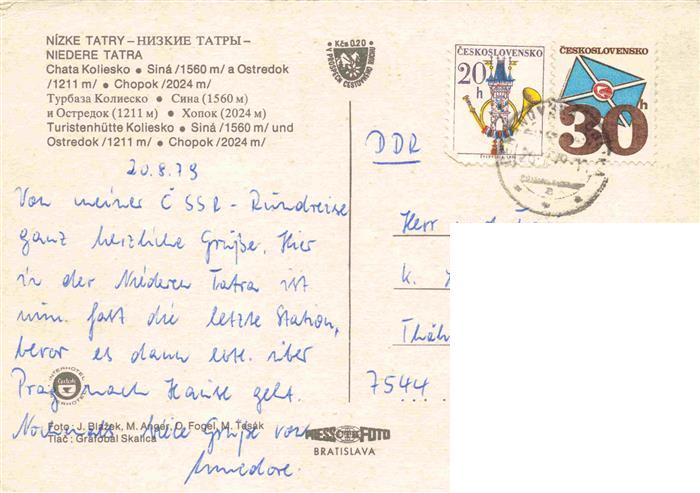 NÍZKE TATRY – НИЗКИЕ ТАТРЫ –
NIEDERE TATRA
Chata Koliesko • Siná /1560 m/ a Ostredok
/1211 m/ • Chopok /2024 m/
Турбаза Колиеско • Сина (1560 м)
и Остредок (1211 м) • Хопок (2024 м)
Turistenhütte Koliesko • Siná /1560 m/ und
Ostredok /1211 m/ • Chopok /2024 m/
Kčs 0.20
V PROSPECH CESTOVNÉHO RUCHU
ČESKOSLOVENSKO
20 h
ČESKOSLOVENSKO
30 h
20.8.79
Von meiner ČSSR-Rundreise
ganz herzliche Grüße. Hier
in der Niederen Tatra ist
nun fast die letzte Station,
bevor es dann über
Prag nach Hause geht.
Nochmals viele Grüße von
Annedore.
DDR
Herr
K.
7544
INTERHOTEL
Čedok
INTERHOTEL
Foto: J. Blažek, M. Anger, O. Fogel, M. Tesák
Tlač: Grafobal Skalica
PRESSFOTO
BRATISLAVA